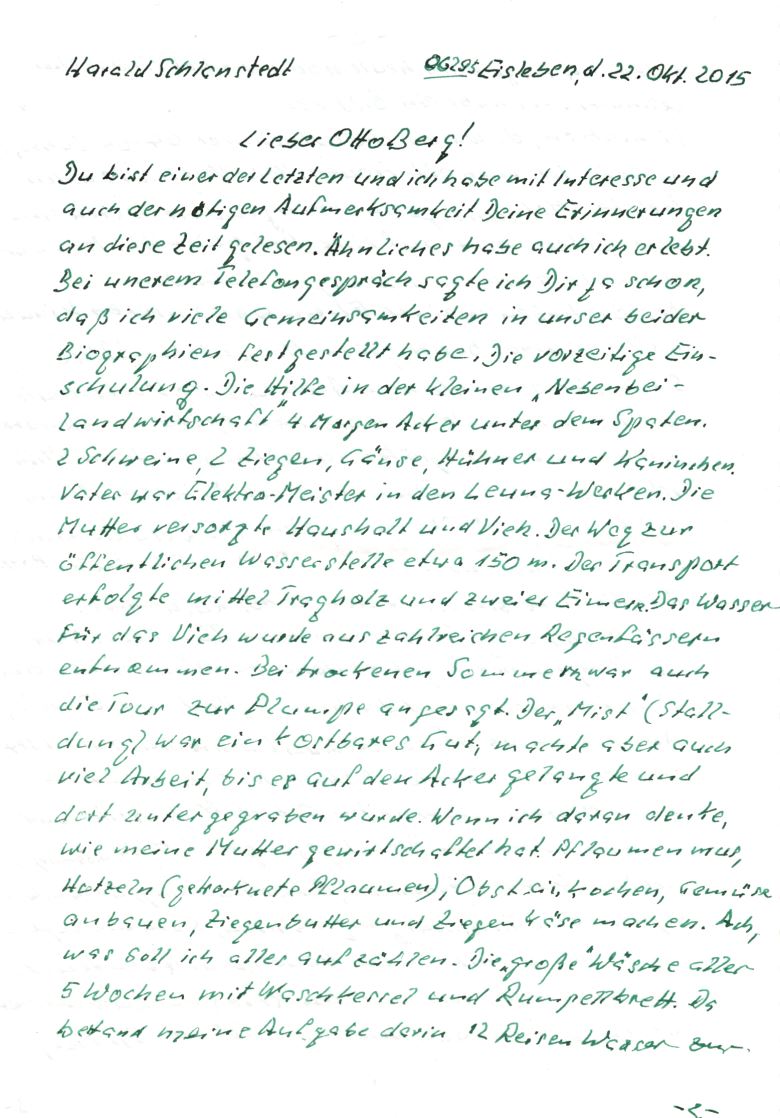 Harald Schlanstedt 06295 Eisleben, d. 22. Okt. 2015
Lieber Otto Berg!
Du bist einer der Letzten und ich habe mit Interesse und
auch der nötigen Aufmerksamkeit Deine Erinnerungen
an diese Zeit gelesen. Ähnliches habe auch ich erlebt.
Bei unerem Telefongespräch sagte ich Dir ja schon,
daß ich viele Gemeinsamkeiten in unser beider
Biographien festgestellt habe. Die vorzeitige Ein-
schulung. Die Hilfe in der kleinen „Nebenbei-
landwirtschaft" 4 Morgen Acker unter dem Spaten.
2 Schweine, 2 Ziegen, Gänse, Hühner und Kaninchen.
Vater war Elektro-Meister in den Leuna-Werken. Die
Mutter versorgte Haushalt und Vieh. Der Weg zur
öffentlichen Wasserstelle etwa 150 m. Der Transport
erfolgte mittel Tragholz und zweier Eimern. Das Wasser
für das Vieh wurde aus zahlreichen Regenfässern
entnommen. Bei trockenen Sommern war auch
die Tour zur Plumpe angesagt. Der „Mist" (Stall-
dung) war ein kostbares Gut, machte aber auch
viel Arbeit, bis er auf den Acker gelangte und
dort untergegraben wurde. Wenn ich daran denke,
wie meine Mutter gewirtschaftet hat. Pflaumenmus,
Hotzeln (getrocknete Pflaumen), Obst einkochen, Gemüse
anbauen, Ziegenbutter und Ziegenkäse machen. Ach,
was soll ich alles aufzählen. Die „große" Wäsche aller
5 Wochen mit Waschkessel und Rumpelbrett. Da
bestand meine Aufgabe darin 12 Reisen Wasser zur
-2-